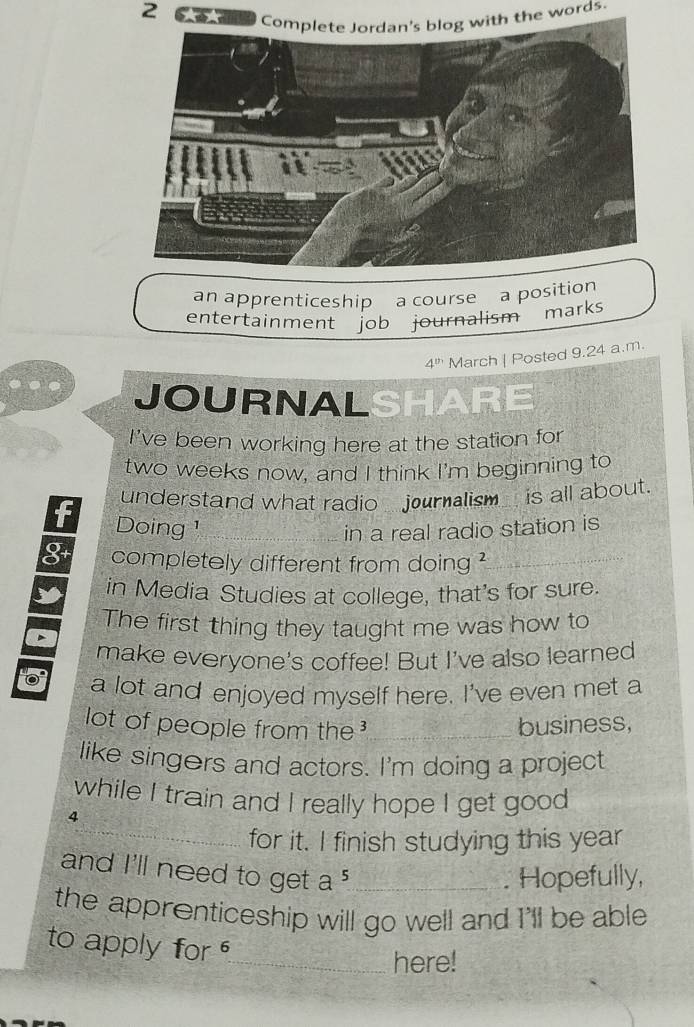 2 Complete Jordan's blog with the words.
an apprenticeship a course a position
entertainment job journalism marks
4th March | Posted 9.24 a.m.
JOURNALSHARE
I've been working here at the station for
two weeks now, and I think I'm beginning to
understand what radio journalism is all about.
Doing 1 in a real radio station is
completely different from doing 2
in Media Studies at college, that's for sure.
The first thing they taught me was how to
make everyone's coffee! But I've also learned
a lot and enjoyed myself here. I've even met a
lot of people from the 3 business,
like singers and actors. I'm doing a project
while I train and I really hope I get good
4 for it. I finish studying this year
and I'll need to get a 5 . Hopefully,
the apprenticeship will go well and I'll be able
to apply for 6 here!
f
8+